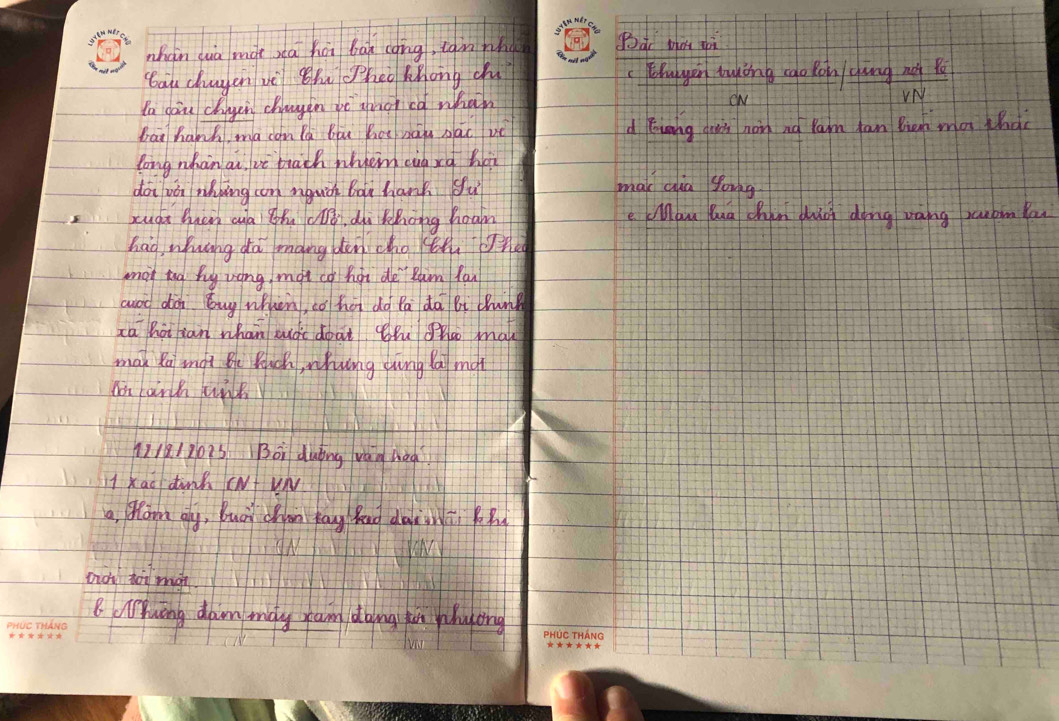 LUYỆN NÉT CHỮ
Rèn nết người
nhân của một xã hội bất công, tàn nhẫn
Câu chuyện về Chí Phèo không chỉ
là câu chyện chuyện về một cá nhân
bất hạnh, mà còn là bài học sâu sắc về
lòng nhân ái, về trách nhiệm của xã hội
đối với những con người bất hạnh. Sự
xuất hiện của Thị Nở, dù không hoàn
hảo, nhưng đã mang đến cho Chí Phèo
một tia hy vọng, một cơ hội để làm lại
cuộc đời. Tuy nhiên, cơ hội đó lại đã bị chính
xã hội tàn nhẫn cước đoạt. Chí Phèo mãi
mãi là một bi kịch, nhưng cũng là một
lời cảnh tỉnh
12/8/2025 Bồi dưỡng văn hoá.
1 Xác định CN - VN
a, Hôm ấy, buổi chợ tay kéo dài mãi khi
CN VN
trời tối mới.
b Những đám mây xám đang tới nhường
CN VN
PHÚC THÀNG
LUYỆN NÉT CHỮ
Rèn nết người
Bác trời tối
c Chuyện trường cao lớn / cũng nói là
CN VN
d Trong nón ná làm tan biến mọi thắc
mắc của lòng
e Màu lúa chín dưới đồng vàng xuộm lại
PHÚC THÀNG